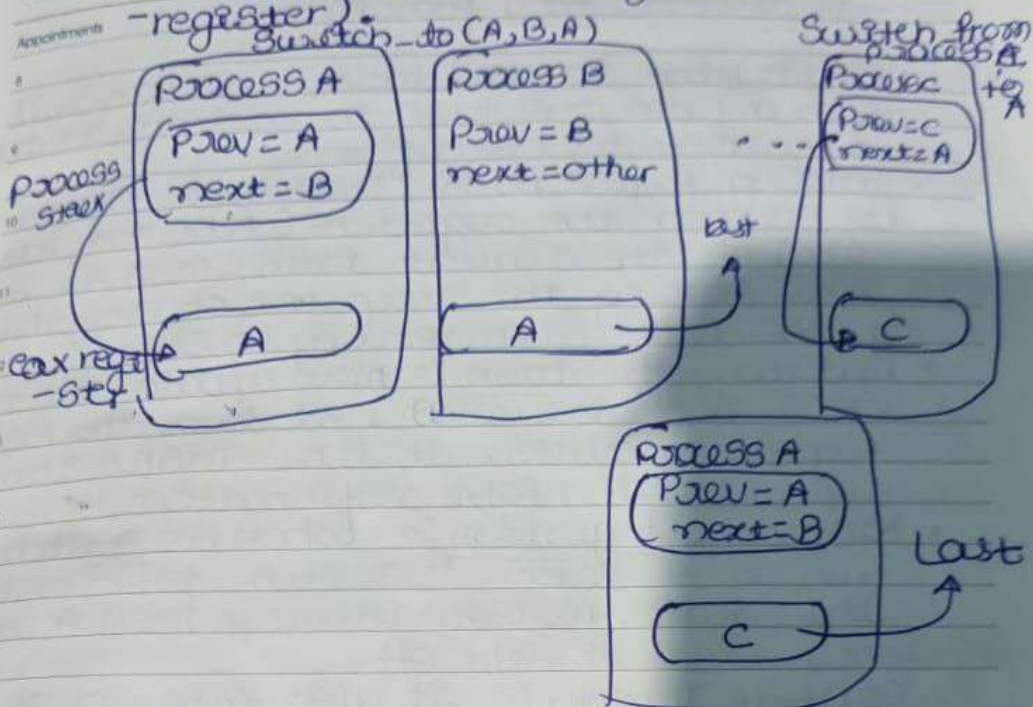 Appointments
-register).
Switch_to (A,B,A)
Switch from
process C
to
A
8
9
10
11
process
stack
process A
Prev = A
next = B
A
eax regi
-ster
process B
Prev = B
next = other
A
last
...
Process C
Prev = C
next = A
C
process A
Prev = A
next = B
C
Last